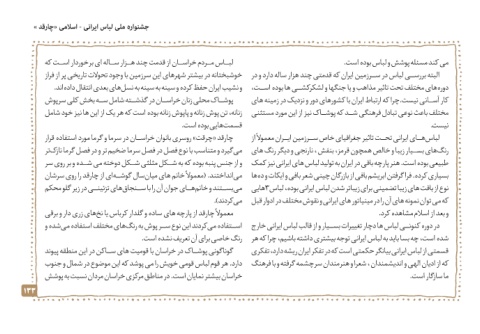 جشنواره ملی لباس ایرانی - اسلامی «چارقد»
لباس مردم خراسان از قدمت چند هزار ساله ای برخوردار است که
خوشبختانه در بیشتر شهرهای این سرزمین با وجود تحولات تاریخی پر از فراز
و نشیب ایران حفظ کرده و سینه به سینه به نسل‌های بعدی انتقال داده‌اند.
پوشاک محلی زنان خراسان در گذشته شامل سه بخش کلی سرپوش
زنانه، تن پوش زنانه و پاپوش زنانه بوده است که هر یک از این ها نیز خود شامل
قسمت‌هایی بوده است.
چارقد «چرقت» روسری بانوان خراسان در سرما و گرما مورد استفاده قرار
می‌گیرد و متناسب با نوع فصل در فصل سرما ضخیم تر و در فصل گرما نازک‌تر
و از جنس پنبه بوده که به شکل مثلثی شکل دوخته می شده و بر روی سر
می‌انداختند. (معمولاً خانم های میان‌سال گوشه‌ای از چارقد را روی سرشان
می‌بستند و خانم‌های جوان آن را با سنجاق‌های تزئینی در زیر گلو محکم
می‌کردند)
معمولاً چارقد از پارچه های ساده و گلدار کرباس یا نخ‌های زری دار و برقی
استفاده می‌کردند این نوع سر پوش به رنگ‌های مختلف استفاده می‌شده و
رنگ خاصی برای آن تعریف نشده است.
گوناگونی پوشاک در خراسان با قومیت های ساکن در این منطقه پیوند
دارد. هر قوم لباس قومی خویش را می پوشد که این موضوع در شمال و جنوب
خراسان بیشتر نمایان است. در مناطق مرکزی خراسان مردان نسبت به پوشش
می کند مسئله پوشش و لباس بوده است.
البته بررسی لباس در سرزمین ایران که قدمتی چند هزار ساله دارد و در
دوره‌های مختلف تحت تاثیر مذاهب و یا جنگها و لشکرکشی ها بوده است،
کار آسانی نیست. چرا که ارتباط ایران با کشورهای دور و نزدیک در زمینه های
مختلف باعث نوعی تبادل فرهنگی شد که پوشاک نیز از این مورد مستثنی
نیست.
لباس‌های ایرانی تحت تاثیر جغرافیای خاص سرزمین ایران معمولاً از
رنگ‌های بسیار زیبا و خالص همچون قرمز، بنفش، نارنجی و دیگر رنگ های
طبیعی بوده است. هنر پارچه بافی در ایران به تولید لباس های ایرانی نیز کمک
بسیاری کرده. فرا گرفتن ابریشم بافی از بازرگان چینی شعر بافی و ایکات و ده‌ها
نوع از بافت های زیبا تضمینی برای زیباتر شدن لباس ایرانی بوده، لباس‌هایی
که می توان نمونه های آن را در مینیاتور های ایرانی و نقوش مختلف در ادوار قبل
و بعد از اسلام مشاهده کرد.
در دوره کنونی لباس ها دچار تغییرات بسیار و از قالب لباس ایرانی خارج
شده است، چه بسا باید به لباس ایرانی توجه بیشتری داشته باشیم، چرا که هر
قسمتی از لباس ایرانی بیانگر حکمتی است که در تفکر ایران ریشه دارد، تفکری
که از ادیان الهی و اندیشمندان، شعرا و هنرمندان سرچشمه گرفته و با فرهنگ
ما سازگار است.
۱۳۳